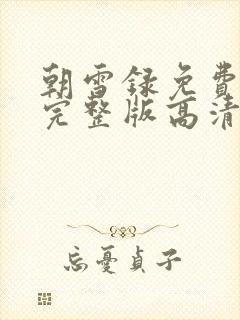 朝雪録免費
完整版高清
忘憂貞子